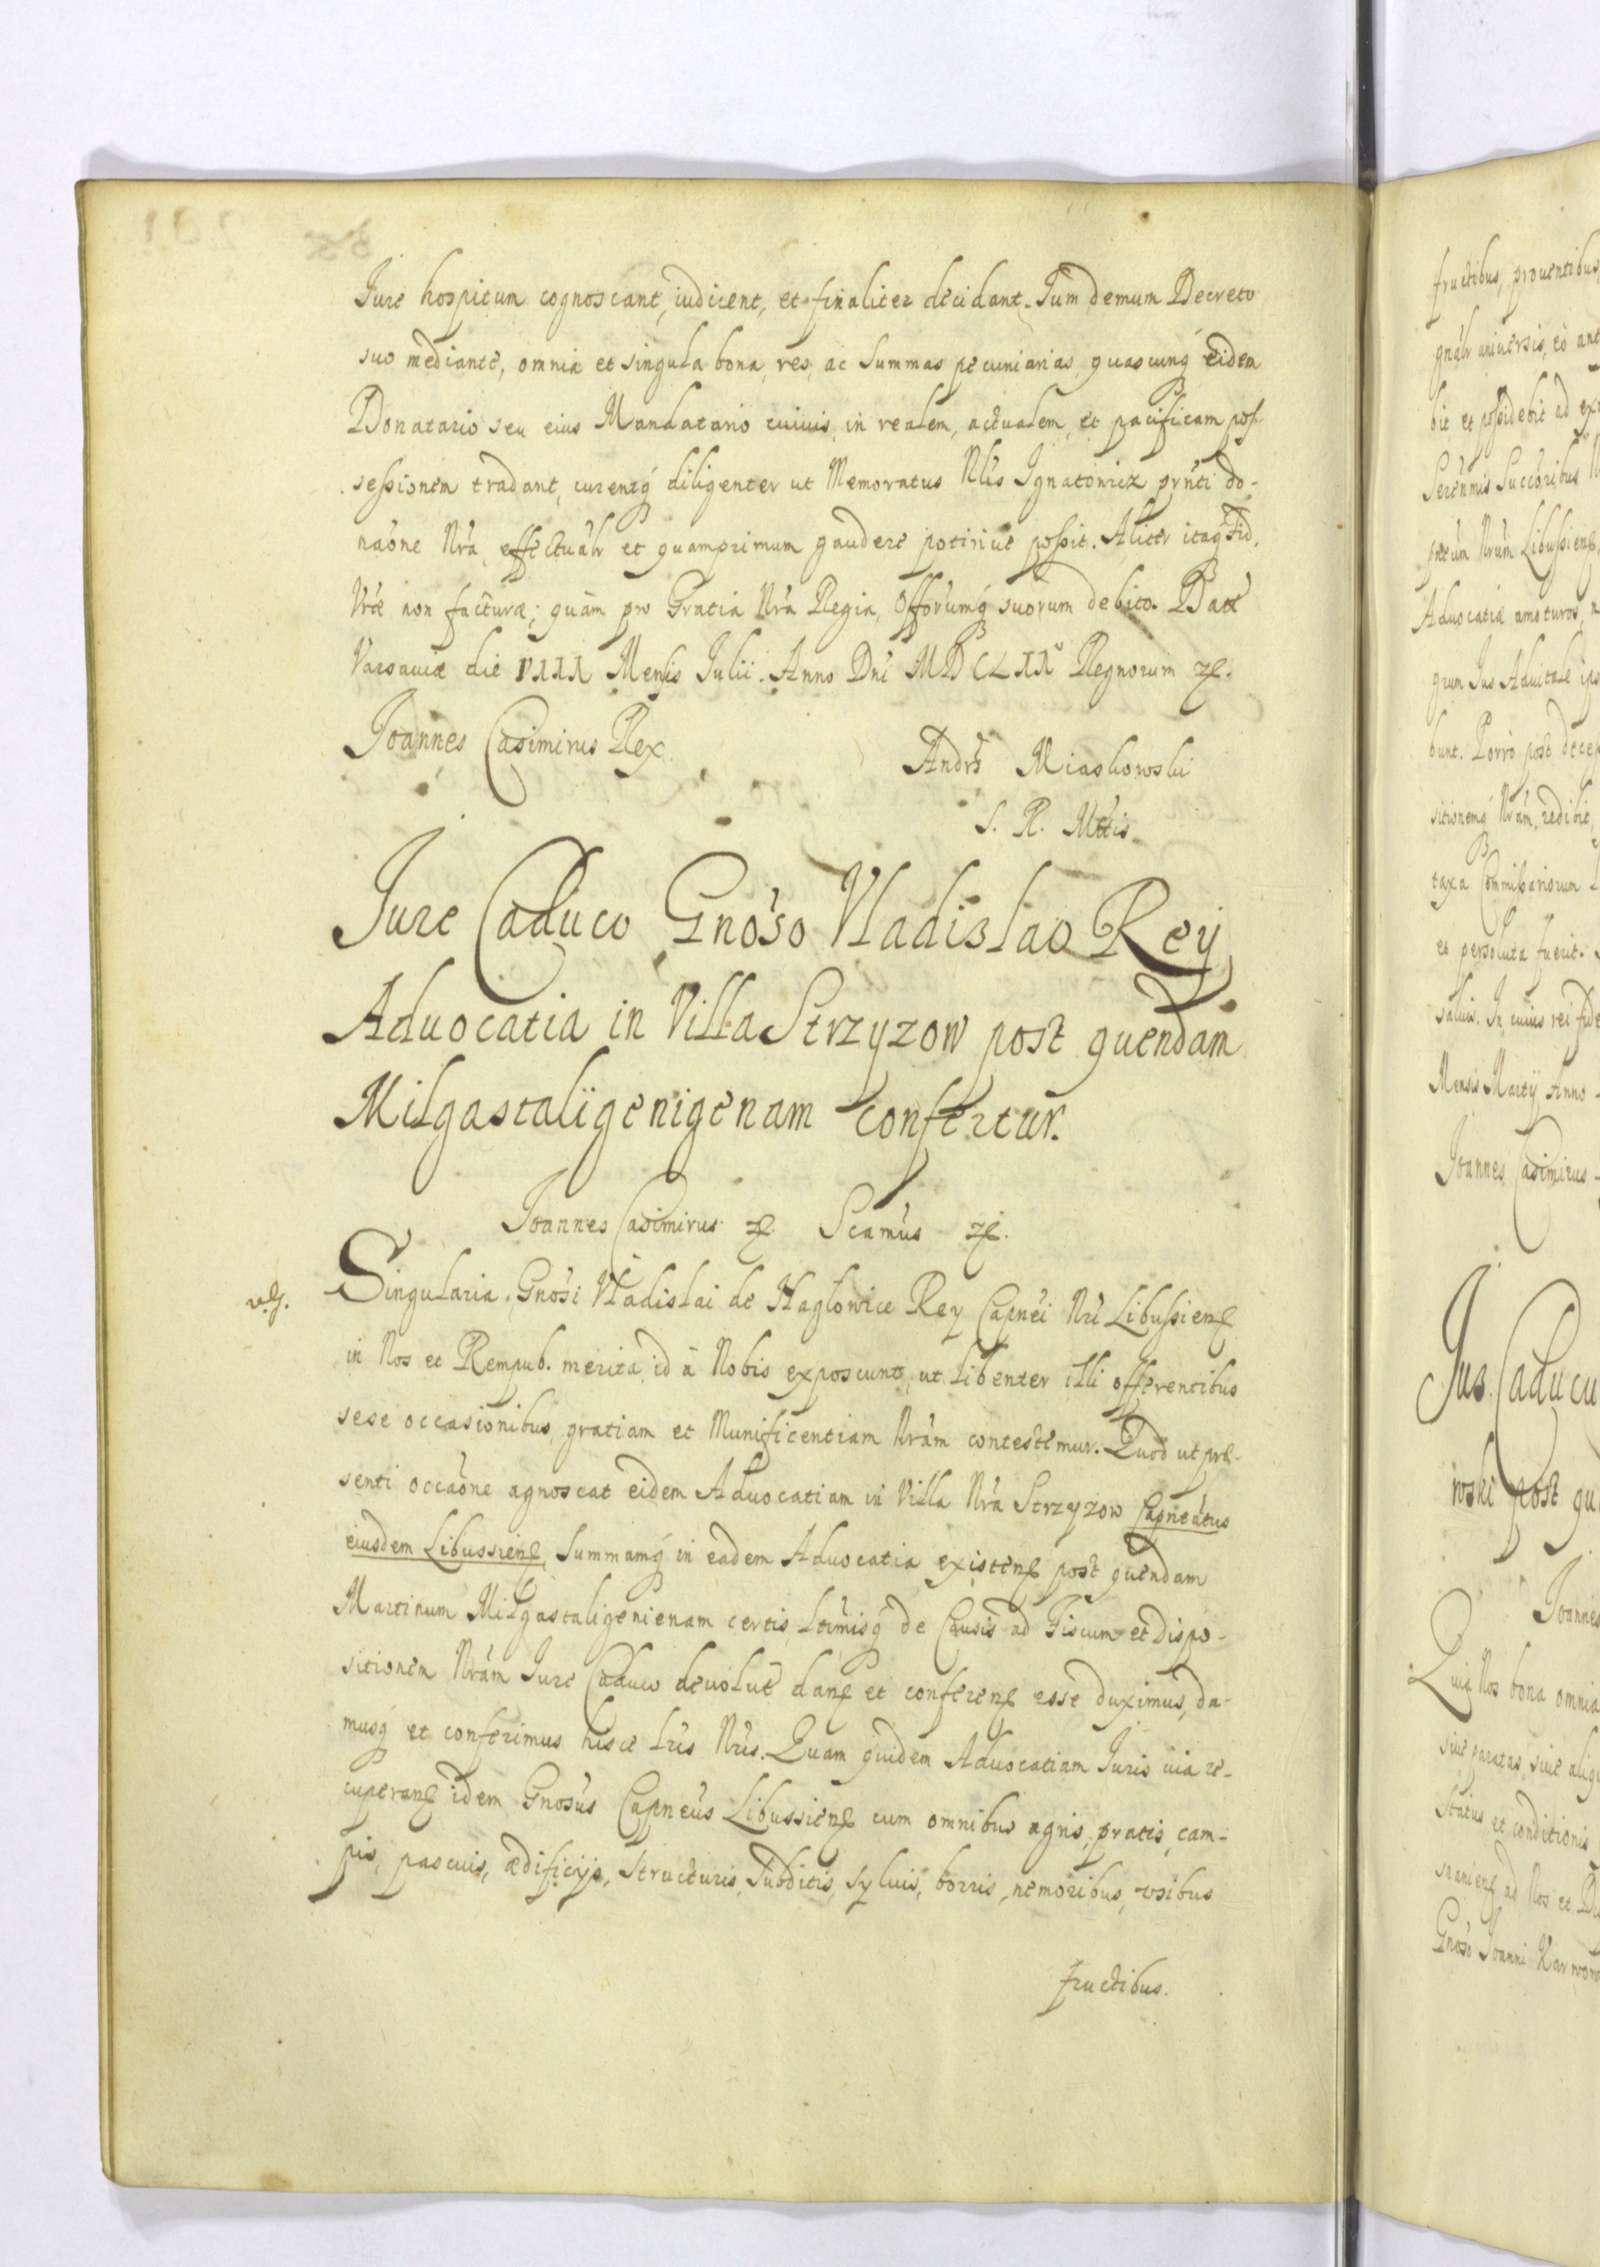 Jure hospitum cognoscant, iudicent, et finaliter decidant. Tum demum Decreto
suo mediante, omnia et singula bona, res, ac summas pecuniarias quascunq́ eidem
Donatario seu eius Mandatario cuiuis, in realem, actualem, et pacificam pos-
sessionem tradant, curentq́ diligenter ut Memoratus Nlis Ignatowicz pr̃nti do-
naõne Nr̃a effectuãlr et quamprimum gaudere potiriue possit. Aliter itaq́ Fid.
Vr̃æ non facturæ; quàm pro Gratia Nr̃a Regia, Offor̃umq́ suorum debito. Dat̃
Varsauiæ die VIII Mensis Julii. Anno Dni MDCLXI Regnorum
Joannes Casimirus Rex.
Andr̃s Miaskowski
S. R. Mttis
Jure Caduco Gnõso Vladislao Rey
Aduocatia in Villa Strzyzow post quendam
Milgastaligenigenam confertur.
Joannes Casimirus Scamũs
Singularia Gnõsi Vladislai de Naglowice Rey Capnẽi Nri Libussien
in Nos et Rempub. merita, id à Nobis exposcunt, ut libenter illi offerentibus
sese occasionibus gratiam et Munificentiam Nrãm contestemur. Quod ut præ-
senti occaõne agnoscat eidem Aduocatiam in Villa Nr̃a Strzyzow Capneãtus
eiusdem Libussien, summamq́ in eadem Aduocatia existen post quendam
Martinum Milgastaligenienam certis, ltĩmisq́ de Causis ad Fiscum et dispo-
sitionem Nrãm Jure Caduco deuolut̃ dan et conferen esse duximus, da-
musq́ et conferimus hisce lr̃is Nr̃is. Quam quidem Aduocatiam Juris uia re-
cuperan idem Gnosũs Capneũs Libussien cum omnibus agris, pratis, cam-
pis, pascuis, ædificijs, structuris, subditis, syluis, borris, nemoribus, usibus
fructibus.
fructibus, prouentibus
bit et possidebit ad
Serenmis Succoribus
Aduocatiæ amoturos,
bunt. Porrò post
sitionemq́ Nrãm, redibit,
taxa Commissariorum
et persoluta fuerit.
saluis. In cuius rei fide
Mensis Martij Anno
Joannes Casimirus
Jus Caducu
wski post qu
Joannes
Quia Nos bona omnia
siue paratas, siue aliqu
status et conditionis
Gnõso Joanni